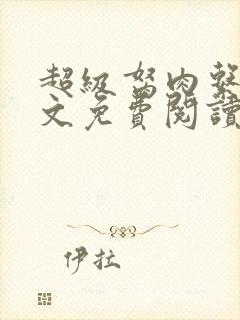 超級努肉
文免費閱讀
伊拉